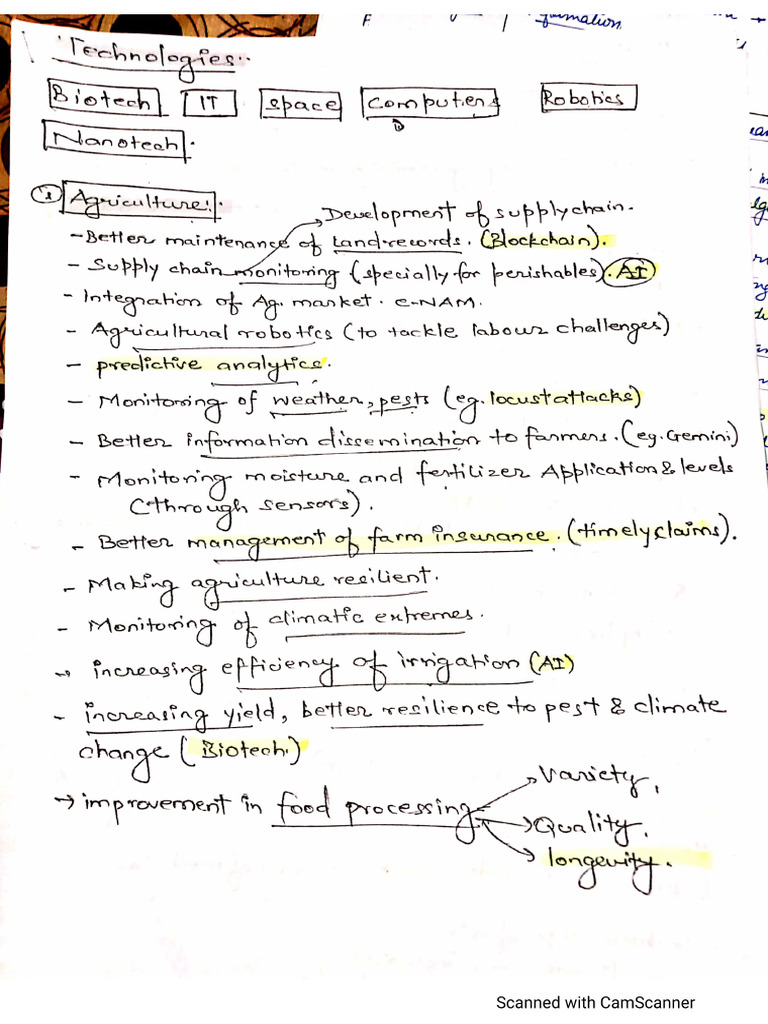 Technologies:
Biotech IT Space Computers Robotics
Nanotech.
① Agriculture:
Development of supply chain.
- Better maintenance of Land records. (Blockchain).
- Supply chain monitoring (specially for perishables). AI
- Integration of Ag. market. e-NAM.
- Agricultural robotics (to tackle labour challenges)
- predictive analytics.
- Monitoring of weather, pests (eg. locust attacks)
- Better information dissemination to farmers. (eg. Gemini)
- Monitoring moisture and fertilizer Application & levels
(through sensors).
- Better management of farm insurance. (timely claims).
- Making agriculture resilient.
- Monitoring of climatic extremes.
→ increasing efficiency of irrigation (AI)
- increasing yield, better resilience to pest & climate
change (Biotech.)
→ improvement in food processing
→ Variety,
→ Quality,
→ longevity.
Scanned with CamScanner